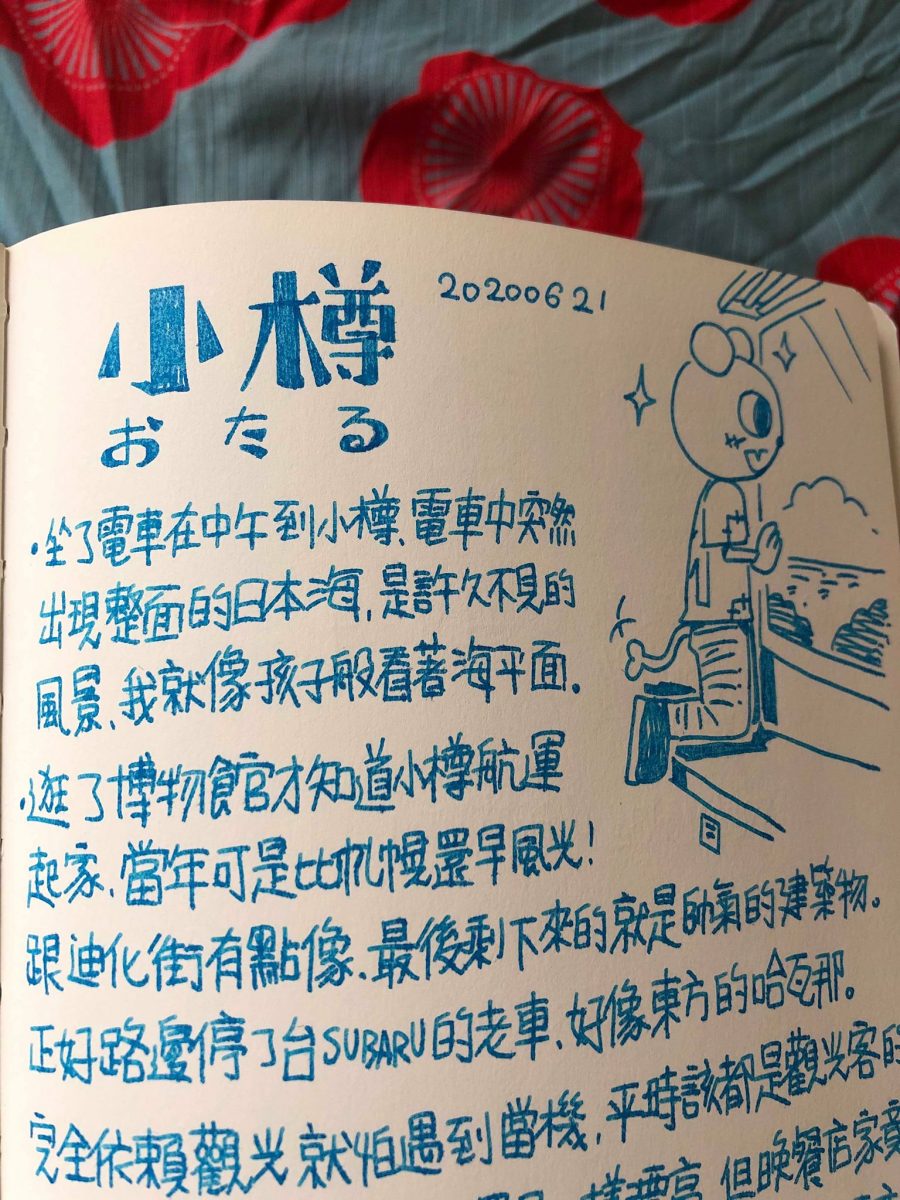 小樽
20200621
おたる
・坐了電車在中午到小樽、電車中突然
出現整面的日本海,是許久不見的
風景、我就像孩子般看著海平面。
・逛了博物館才知道小樽航運
起家、當年可是比札幌還早風光!
跟迪化街有點像、最後剩下來的就是帥氣的建築物。
正好路邊停了台SUBARU的老車、好像東方的哈瓦那。
完全依賴觀光就怕遇到當機,平時該都是觀光客的
但晚餐店家